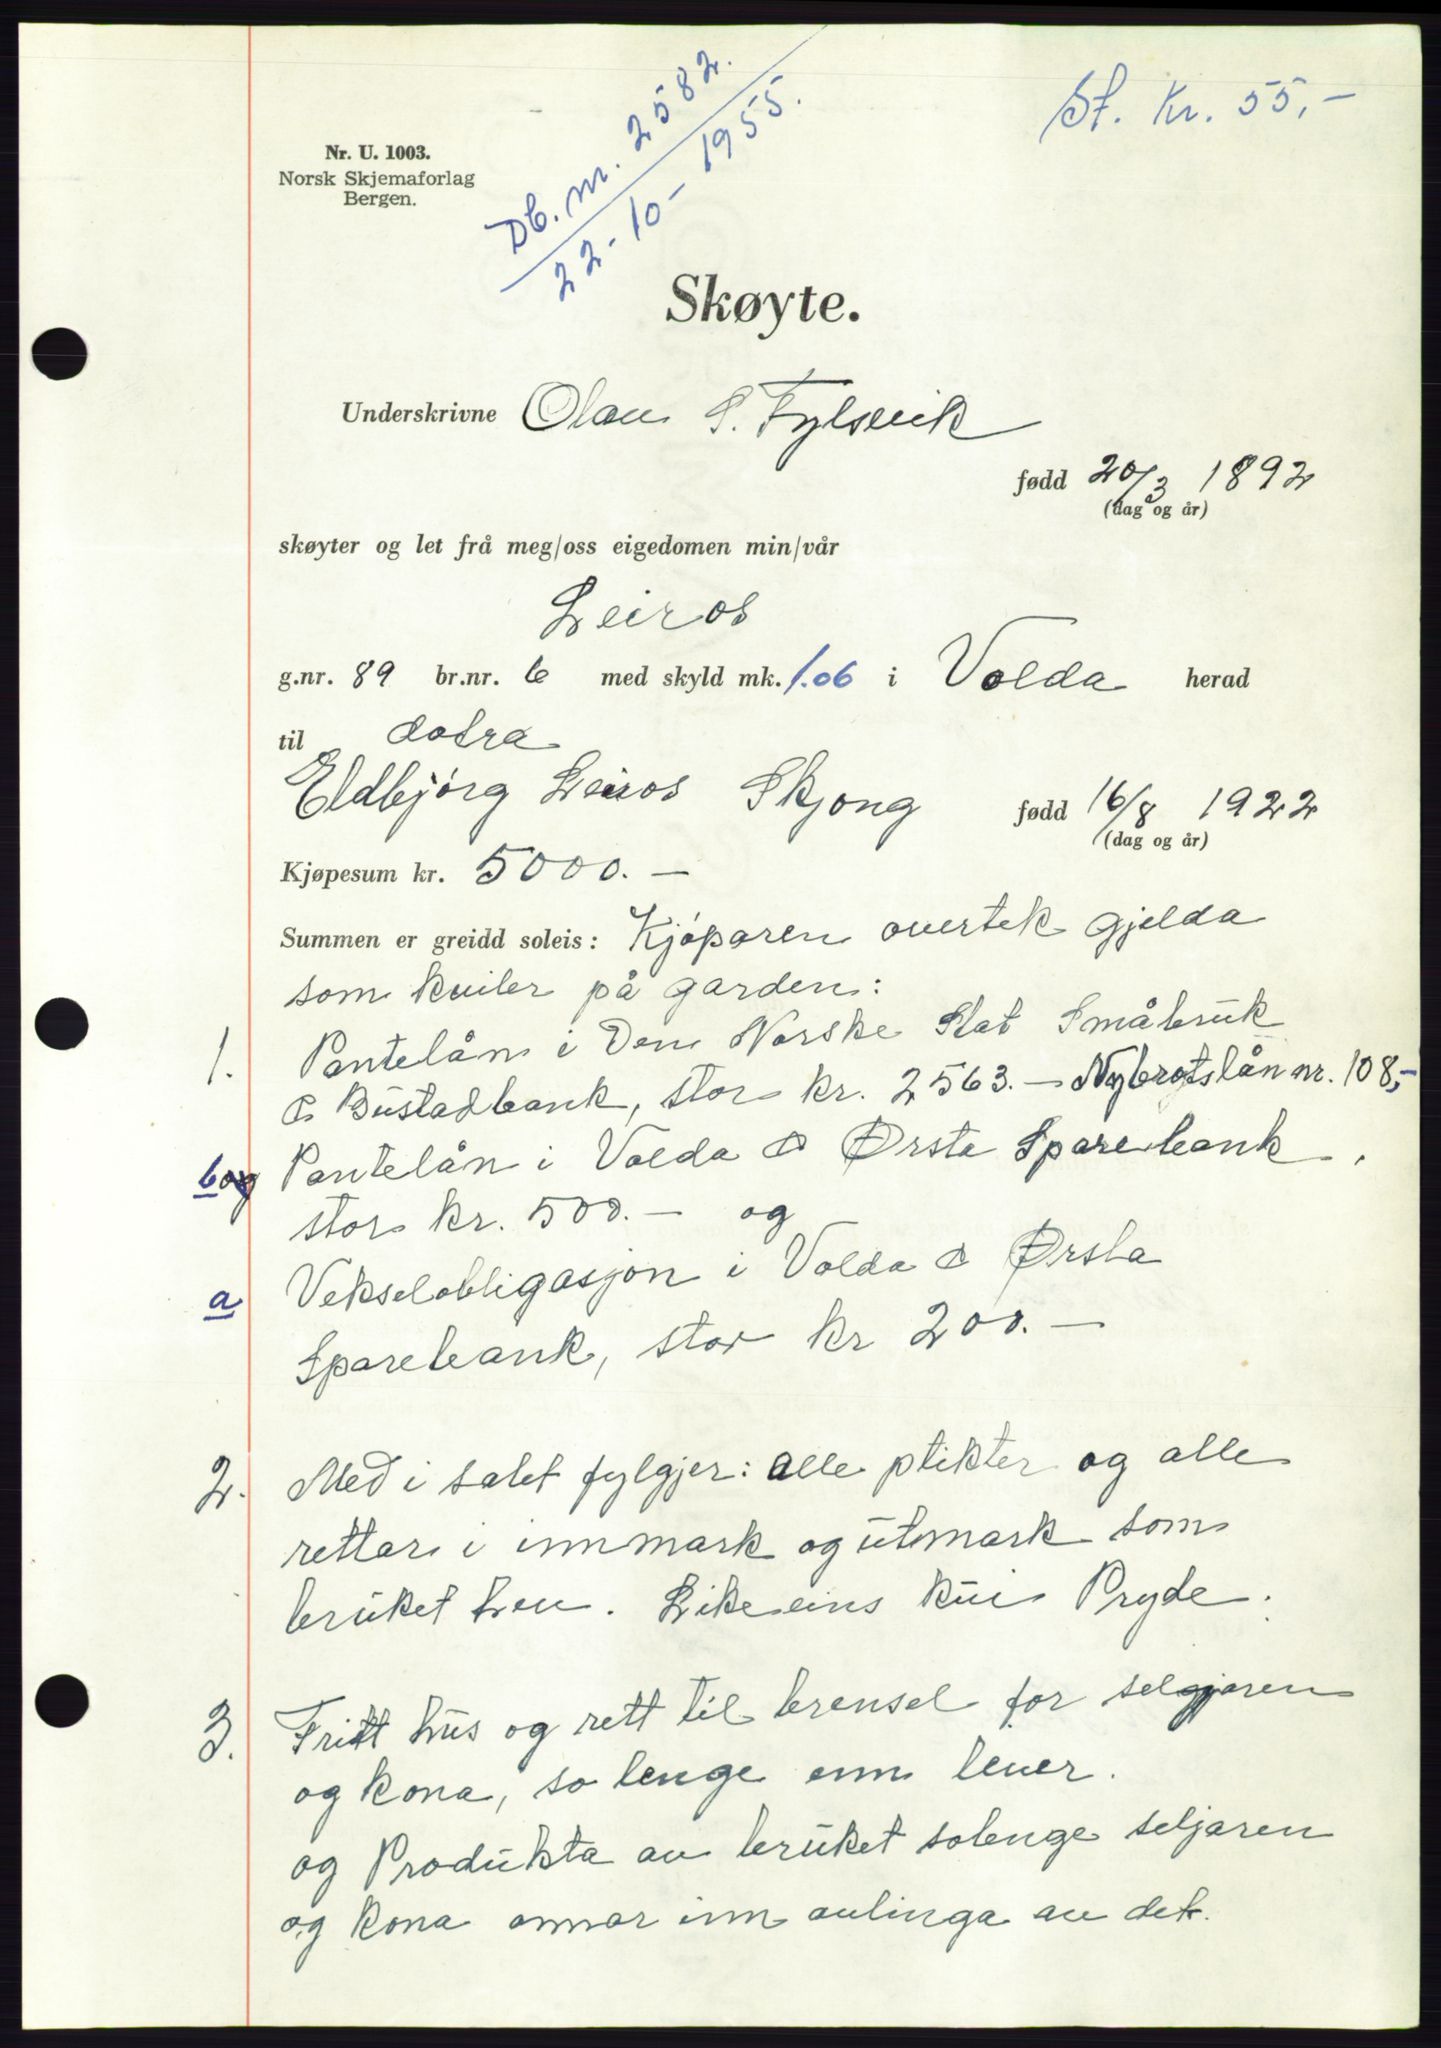 St. Kr. 55,-
Db. nr. 2582.
22-10-1955.
Nr. U. 1003.
Norsk Skjemaforlag
Bergen.
Skøyte.
Underskrivne Olav S. Fylsvik
fødd 20/3 1892
(dag og år)
skøyter og let frå meg/oss eigedomen min/vår
Leiros
g.nr. 89 br.nr. 6 med skyld mk. 1.06 i Volda herad
til dotra
Eldbjørg Leiros Skjong fødd 16/8 1922
(dag og år)
Kjøpesum kr. 5000. —
Summen er greidd soleis: Kjøparen overtek gjelda
som kviler på garden:
1. Pantelån i Den Norske Stat Småbruk
& Bustadbank, stor kr. 2563. — Nybrotslån nr. 108,-
b og Pantelån i Volda & Ørsta Sparebank,
stor kr. 500. — og
a Vekselobligasjon i Volda & Ørsta
Sparebank, stor kr 200. —
2. Med i salet fylgjer: alle plikter og alle
rettar i innmark og utmark som
bruket hev. Likeeins kui Pryde.
3. Fritt hus og rett til brensel for selgjaren
og kona, so lenge enn lever.
og Produkta av bruket solenge seljaren
og kona annar inn avlinga av det.